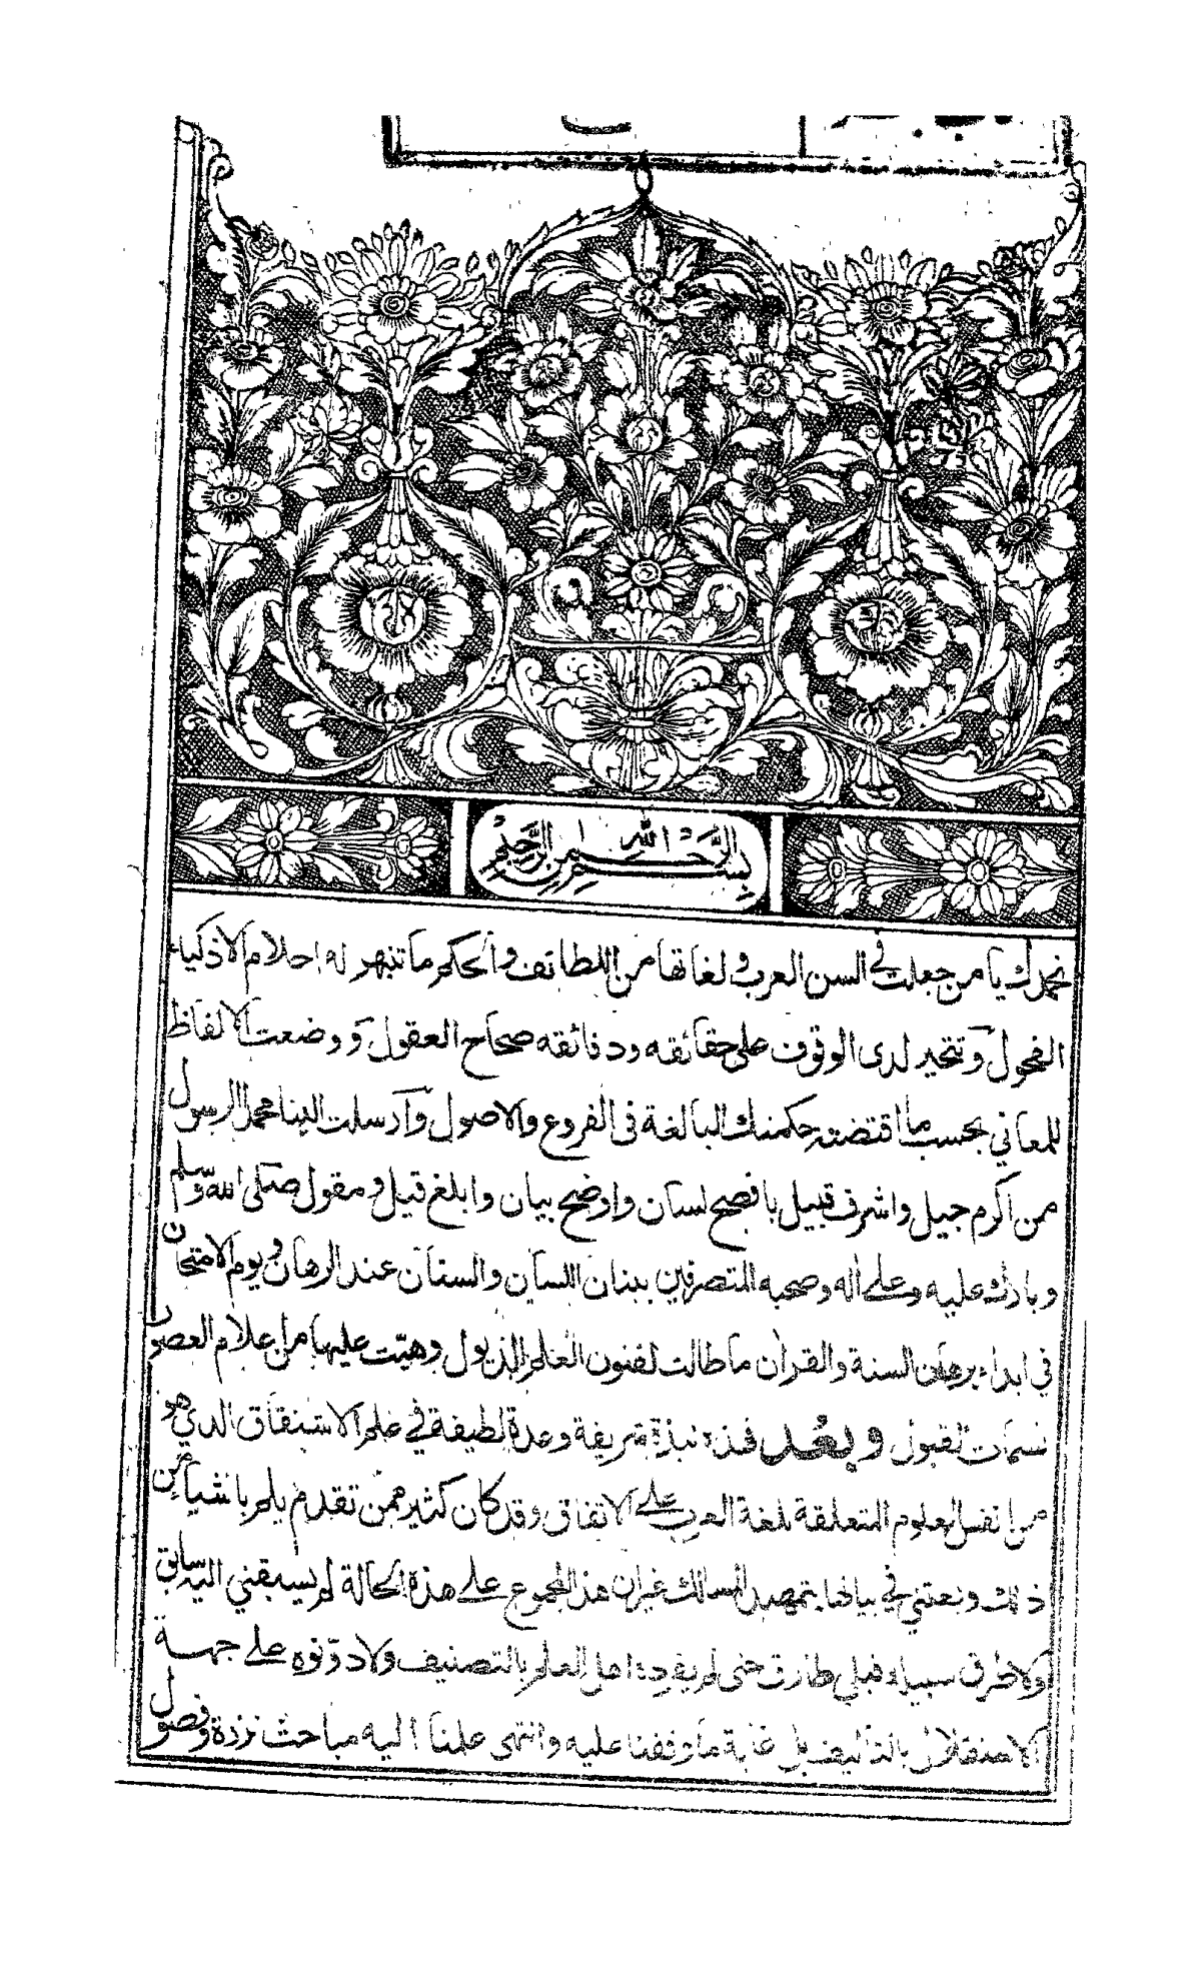 بسم الله الرحمن الرحيم
نحمدك يا من جعلت في السن العرب و لغاتها من اللطائف والحكم ما تنبهر له احلام الاذكياء
الفحول وتتحير لدى الوقوف على حقائقه ودقائقه صحاح العقول ووضعت الالفاظ
للمعاني بحسب ما اقتضته حكمتك البالغة فى الفروع والاصول وآرسلت الينا محمدا الرسول
من اكرم جيل واشرف قبيل بافصح لسان واوضح بيان وابلغ قيل ومقول صلى الله وسلم
وبارك عليه وعلى اله وصحبه المتصرفين ببنان اللسان والسنان عند الرهان ويوم الامتحان
في ابداء برهان السنة والقران ما طالت لفنون العلم الذيول وهبت عليها من اعلام العصور
نسمات القبول وبعد فهذه نبذة شريفة وعدة لطيفة في علم الاشتقاق الذي هو
من انفس العلوم المتعلقة بلغة العرب على الاتفاق وقد كان كثير ممن تقدم يلم باشياء من
ذلك ويعتني في بيانها بتمهيد المسالك غير ان هذا المجموع على هذه الحالة لم يسبقني اليه سابق
ولا طرق سبيله قبلي طارق حتى لم يفرده اهل العلم بالتصنيف ولا دونوه على جهة
الاستقلال بالتأليف بل غاية ما وقفنا عليه وانتهى علمنا اليه مباحث نزرة وفصول